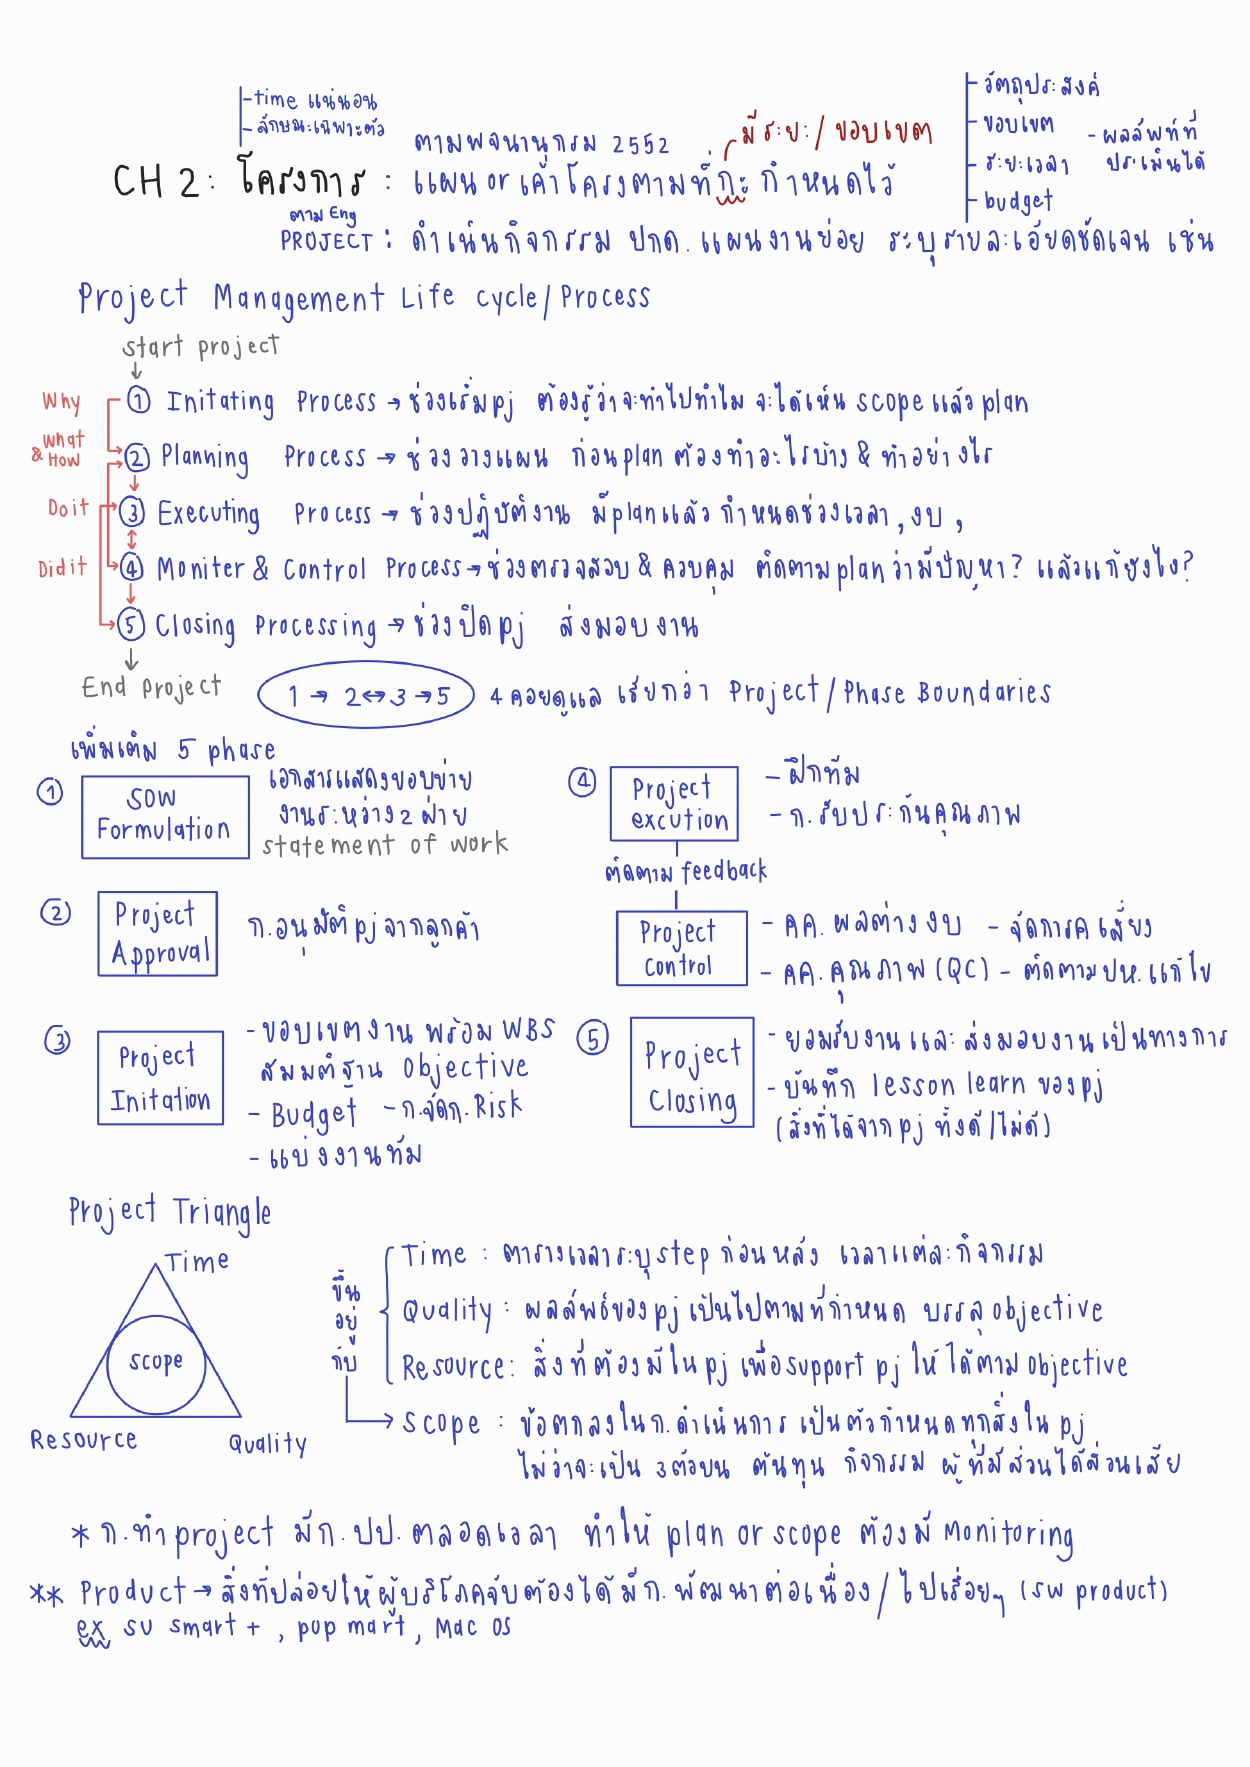 - time แน่นอน
- ลักษณะเฉพาะตัว
ตามพจนานุกรม 2552
มีระยะ/ขอบเขต
- วัตถุประสงค์
- ขอบเขต
- ระยะเวลา
- budget
- ผลลัพท์ที่
ประเมินได้
CH 2 : โครงการ : แผน or เค้าโครงตามที่กะกำหนดไว้
ตาม Eng
PROJECT : ดำเนินกิจกรรม ปกต. แผนงานย่อย ระบุรายละเอียดชัดเจน เช่น
Project Management Life cycle/Process
start project
Why
① Initating Process → ช่วงเริ่ม pj ต้องรู้ว่าจะทำไปทำไม จะได้เห็น scope แล้ว plan
what
& How
② Planning Process → ช่วงวางแผน ก่อน plan ต้องทำอะไรบ้าง & ทำอย่างไร
Do it
③ Executing Process → ช่วงปฏิบัติงาน มี plan แล้ว กำหนดช่วงเวลา , งบ ,
Did it
④ Moniter & Control Process → ช่วงตรวจสอบ & ควบคุม ติดตาม plan ว่ามีปัญหา? แล้วแก้ยังไง?
⑤ Closing Processing → ช่วงปิด pj ส่งมอบงาน
End project
1 → 2 ↔ 3 → 5
4 คอยดูแล เรียกว่า Project/Phase Boundaries
เพิ่มเติม 5 phase
① SOW
Formulation
เอกสารแสดงขอบข่าย
งานระหว่าง 2 ฝ่าย
statement of work
② Project
Approval
ก.อนุมัติ pj จากลูกค้า
③ Project
Initation
- ขอบเขตงาน พร้อม WBS
สมมติฐาน Objective
- Budget - ก.จัดก. Risk
- แบ่งงานทีม
④ Project
excution
- ฝึกทีม
- ก. รับประกันคุณภาพ
ติดตาม feedback
Project
control
- คค. ผลต่างงบ - จัดการค เสี่ยง
- คค. คุณภาพ (QC) - ติดตามปห. แก้ไข
⑤ Project
Closing
- ยอมรับงาน และส่งมอบงานเป็นทางการ
- บันทึก lesson learn ของ pj
(สิ่งที่ได้จาก pj ทั้งดี/ไม่ดี)
Project Triangle
Time
scope
Resource
Quality
ขึ้น
อยู่
กับ
Time : ตารางเวลาระบุ step ก่อนหลัง เวลาแต่ละกิจกรรม
Quality : ผลลัพธ์ของ pj เป็นไปตามที่กำหนด บรรลุ objective
Resource : สิ่งที่ต้องมีใน pj เพื่อ support pj ให้ได้ตาม objective
Scope : ข้อตกลงในก.ดำเนินการ เป็นตัวกำหนดทุกสิ่งใน pj
ไม่ว่าจะเป็น 3 ตัวบน ต้นทุน กิจกรรม ผู้ที่มีส่วนได้ส่วนเสีย
* ก.ทำ project มีก.ปป.ตลอดเวลา ทำให้ plan or scope ต้องมี Monitoring
** Product → สิ่งที่ปล่อยให้ผู้บริโภคจับต้องได้ มีก.พัฒนาต่อเนื่อง/ไปเรื่อยๆ (sw product)
ex su smart + , pop mart , Mac OS